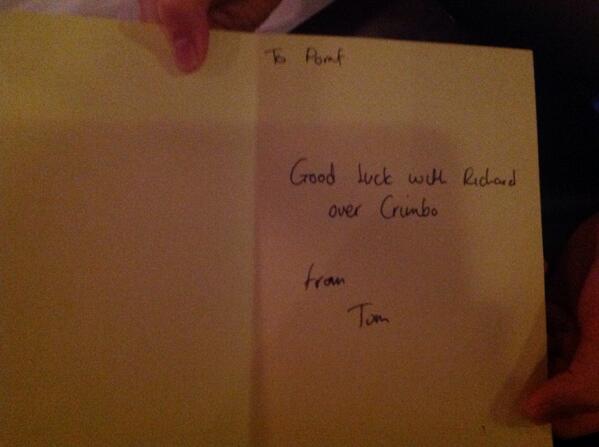 To
Good luck with Richard
over Crimbo
from
Tom